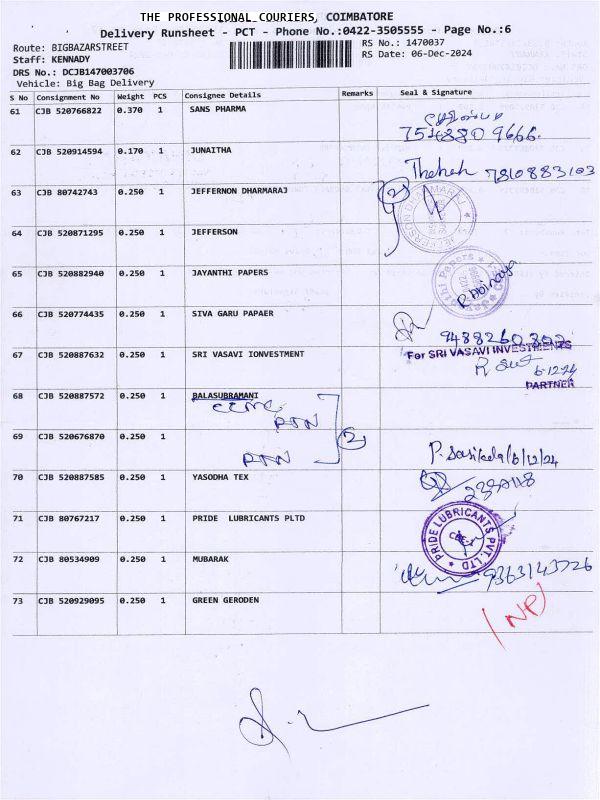 THE PROFESSIONAL COURIERS, COIMBATORE
Delivery Runsheet - PCT - Phone No.:0422-3505555 - Page No.:6
Route: BIGBAZARSTREET
RS No.: 1470037
Staff: KENNADY
RS Date: 06-Dec-2024
DRS No.: DCJB147003706
Vehicle: Big Bag Delivery
S No Consignment No Weight PCS Consignee Details Remarks Seal & Signature
61 CJB 520766822 0.370 1 SANS PHARMA
754880 9666.
62 CJB 520914594 0.170 1 JUNAITHA
7810883103
63 CJB 80742743 0.250 1 JEFFERNON DHARMARAJ
2
JEFFERSON DHARMARAJ
64 CJB 520871295 0.250 1 JEFFERSON
65 CJB 520882940 0.250 1 JAYANTHI PAPERS
66 CJB 520774435 0.250 1 SIVA GARU PAPAER
67 CJB 520887632 0.250 1 SRI VASAVI IONVESTMENT
For SRI VASAVI INVESTMENTS
6-12-24
PARTNER
68 CJB 520887572 0.250 1 BALASUBRAMANI
69 CJB 520676870 0.250 1
2
P. Sasikala/6/12/24
70 CJB 520887585 0.250 1 YASODHA TEX
71 CJB 80767217 0.250 1 PRIDE LUBRICANTS PLTD
PRIDE LUBRICANTS PVT. LTD
CBE-1
72 CJB 80534909 0.250 1 MUBARAK
9363143726
73 CJB 520929095 0.250 1 GREEN GERODEN
NP